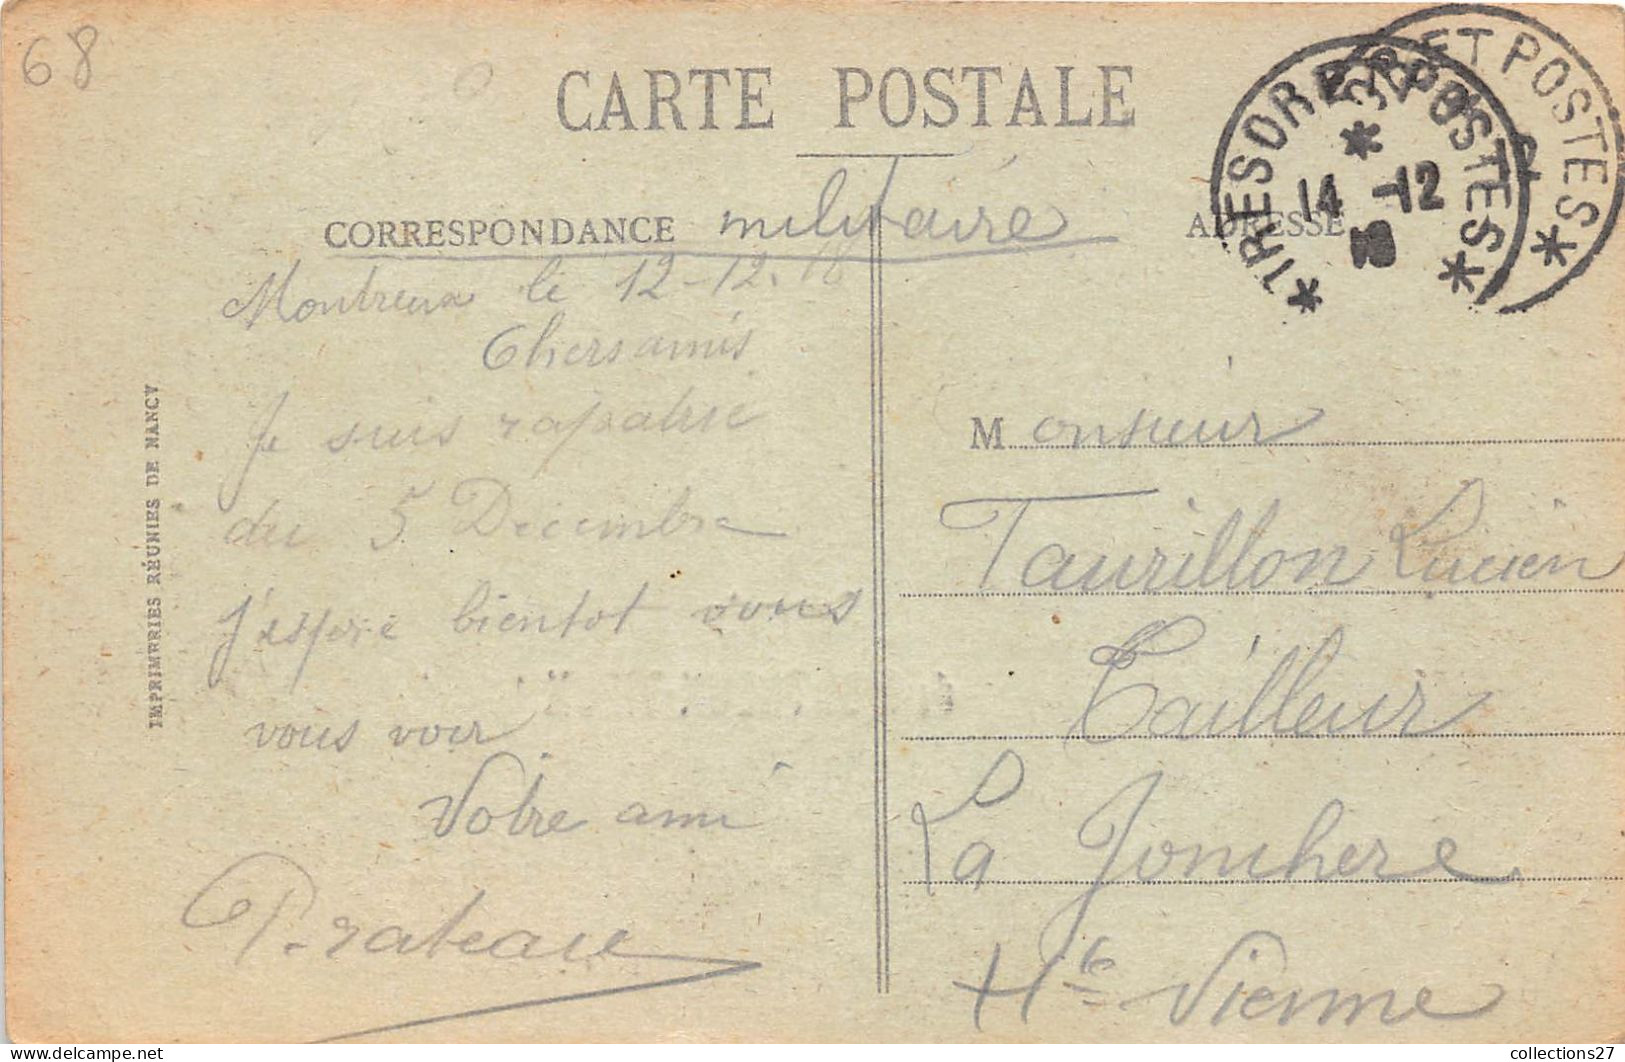 68
CARTE POSTALE
CORRESPONDANCE militaire
ADRESSE
TRESOR ET POSTES
ET POSTES
14 -12
18
Montreux le 12-12-18
Chers amis
Je suis rapatrié
du 5 Décembre
J'espere bientot vous
vous voir
Votre ami
Prateau
Monsieur
Taurillon Lucien
Tailleur
La Jonchere
Hte Vienne
IMPRIMERIES RÉUNIES DE NANCY
collections27